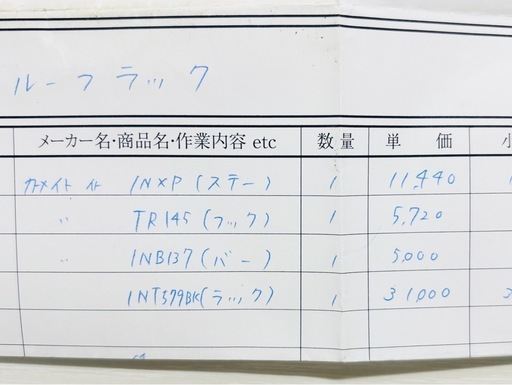 ルーフラック
メーカー名・商品名・作業内容 etc 数量 単価 小
カーメイト INXP (ステー) 1 11,440
〃 TR145 (フック) 1 5,720
〃 INB137 (バー) 1 5,000
INT579BK (ラック) 1 31,000 3